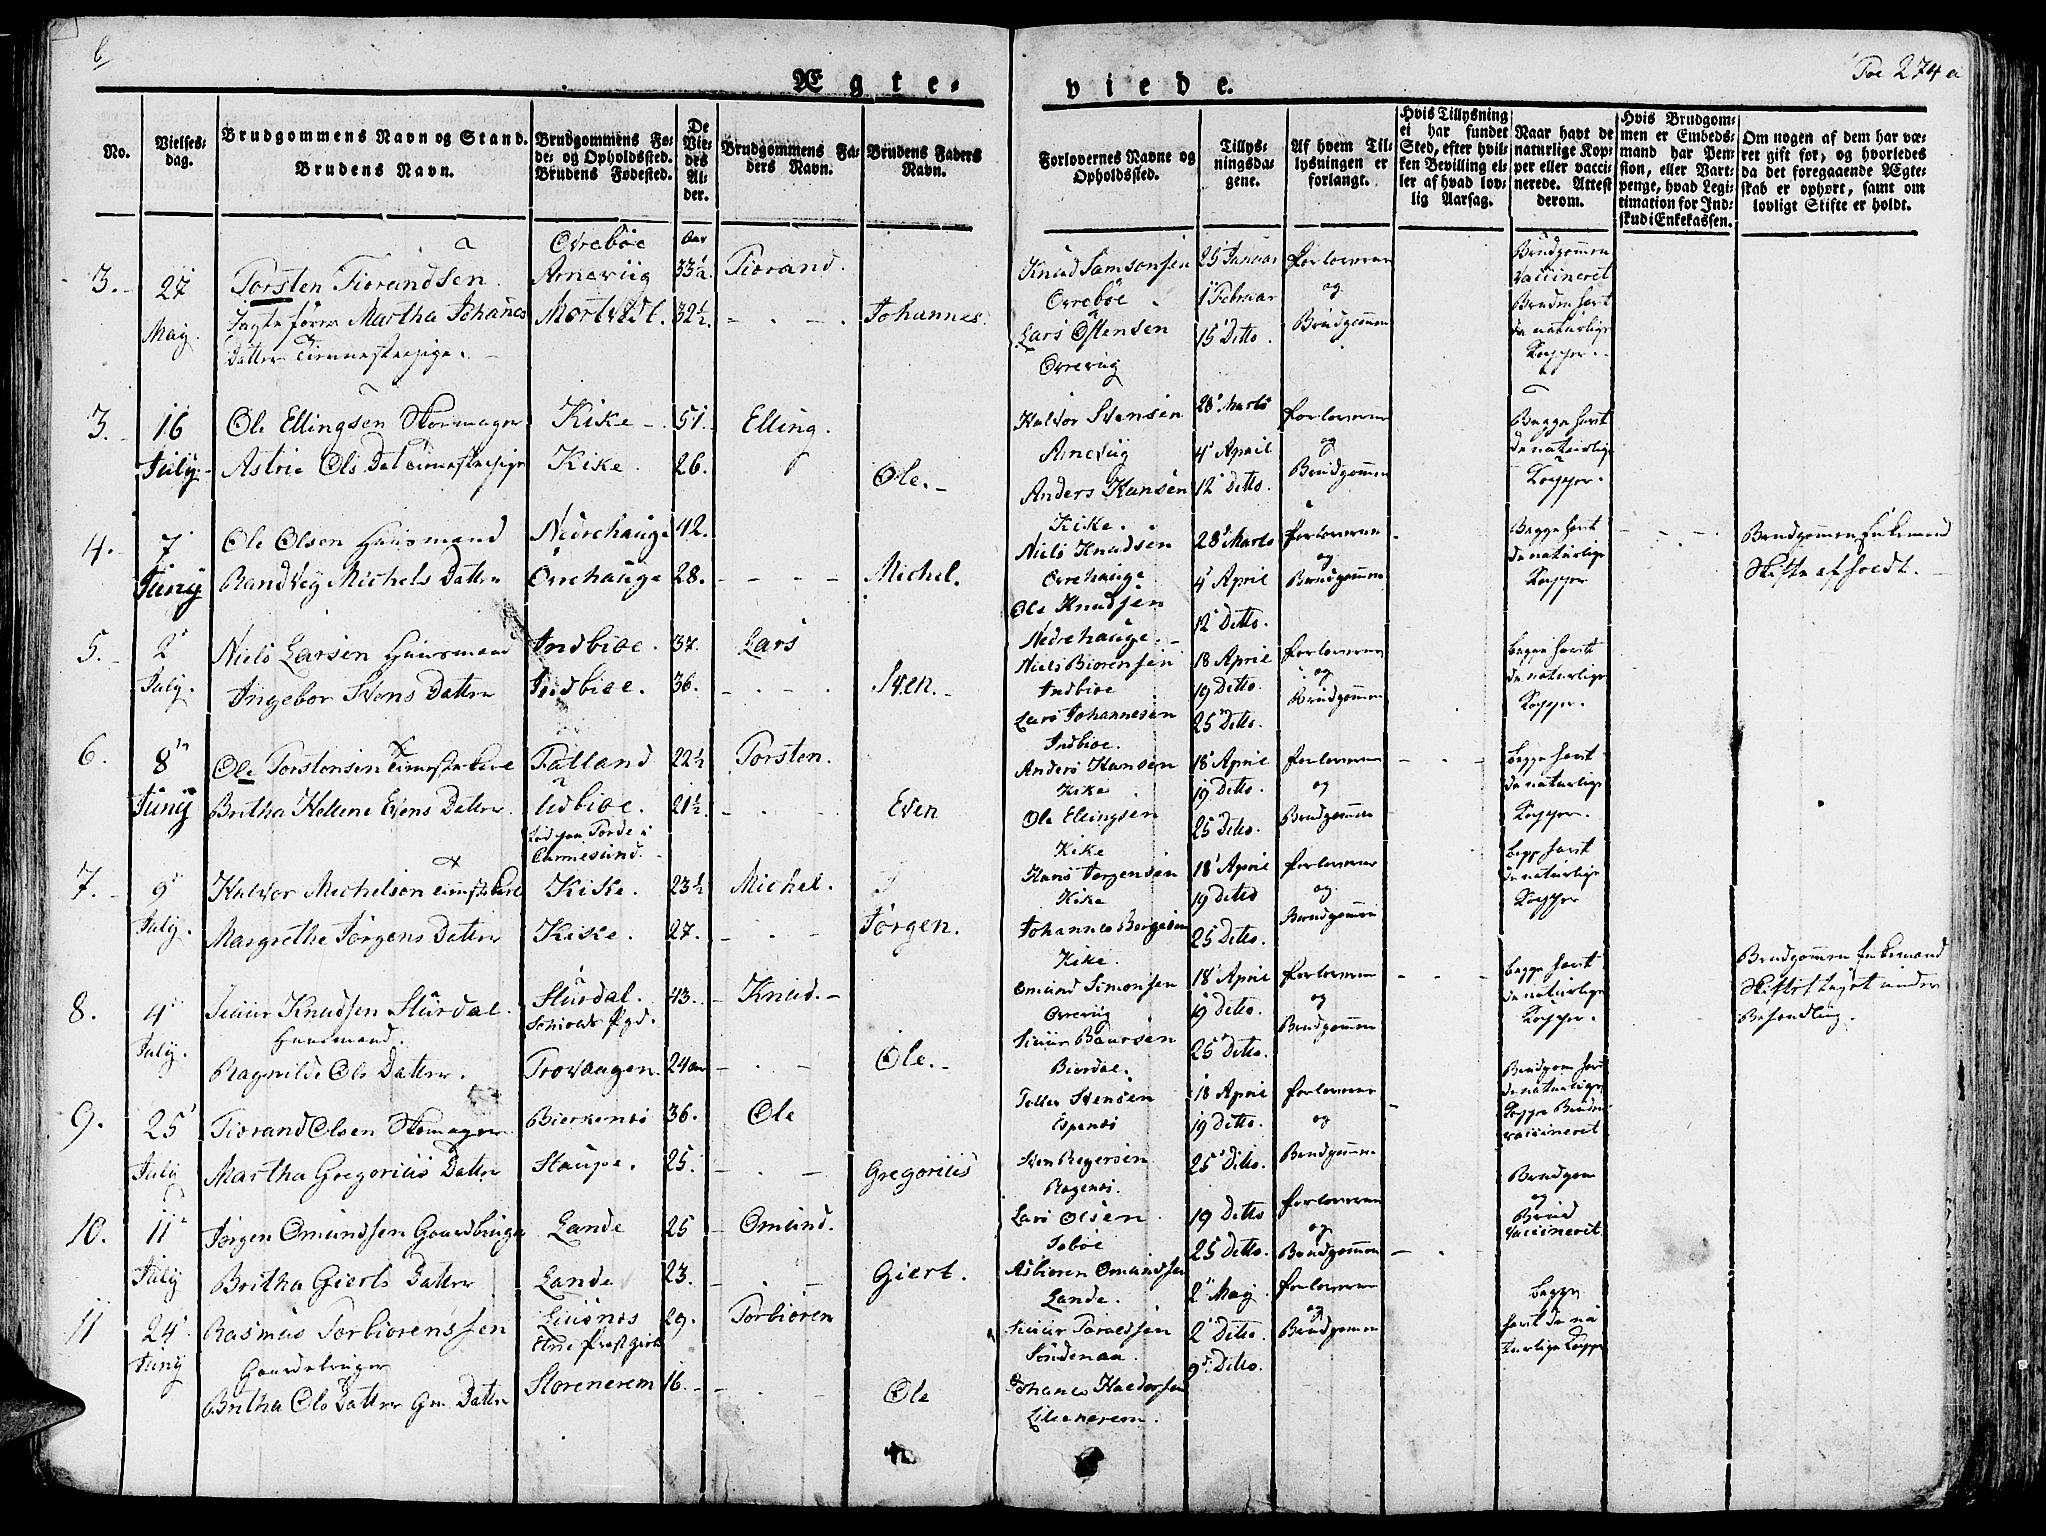 Foe 274 a
Ægte-
viede.
No.
Vielses-
dag.
Brudgommens Navn og Stand.
Brudens Navn.
Brudgommens Fø-
de- og Opholdssted.
Brudens Fødested.
De
Vie-
des
Al-
der.
Brudgommens Fa-
ders Navn.
Brudens Faders
Navn.
Forlovernes Navne og
Opholdssted.
Tillys-
ningsda-
gene.
Af hvem Til-
lysningen er
forlangt.
Hvis Tillysning
ei har fundet
Sted, efter hvil-
ken Bevilling el-
ler af hvad lov-
lig Aarsag.
Naar havt de
naturlige Kop-
per eller vacci-
nerede. Attest
derom.
Hvis Brudgom-
men er Embeds-
mand har Pen-
sion, eller Vart-
penge, hvad Legi-
timation for Ind-
skud i Enkekassen.
Om nogen af dem har væ-
ret gift før, og hvorledes
da det foregaaende Ægte-
skab er ophørt, samt om
lovligt Skifte er holdt.
3. 27 May.
Torsten Tiorandsen
Martha Johanes
Datter
Ovrebøe
Arneviig
Mortvedt.
Aar
33½
32½
Tiorand.
Johannes.
Knud Samsonsen
Ovrebøe
Lars Østensen
Ovreviig
25 Januar
1 Februar
15 Ditto.
Forloveren
og
Brudgommen
Brudgommen
Vaccineret
Bruden havt
de naturlige
Kopper.
3. 16 July.
Ole Ellingsen Skomager
Astrie Ols Dat
Kike
Kike.
51.
26.
Elling.
Ole.
Halvor Svensen
Arneviig
Anders Hansen
Kike.
28 Marts
4 April
12 Ditto.
Forloveren
og
Brudgommen
Begge havt
de naturlige
Kopper.
4. 7 Juny
Ole Olsen Huusmand
Randvey Michels Datter
Nedrehauge
Ovrehauge
42.
28.
Michel.
Niels Knudsen
Ovrehauge
Ole Knudsen
Nedrehauge.
28 Marts
4 April
12 Ditto.
Forloveren
og
Brudgommen
Begge havt
de naturlige
Kopper
Brudgommen Enkemand
Skifte afholdt.
5. 2 July.
Niels Larsen Huusmand
Ingebor Svens Datter
Indbioe.
Indbioe.
37.
36.
Lars
Sven.
Niels Biorensen
Indbioe
Lars Johannesen
Indbioe.
18 April
19 Ditto.
25 Ditto.
Forloveren
og
Brudgommen
begge havt
de naturlige
Kopper.
6. 8 Juny
Ole Torstensen
Britha Hellene Evens Datter
Fatland
Udbioe.
22½
21½
Torsten.
Even
Anders Hansen
Kike
Ole Ellingsen
Kike
18 April
19 Ditto.
25 Ditto.
Forloveren
og
Brudgommen
begge havt
de naturlige
Kopper.
7. 9 July.
Halvor Michelsen
Margrethe Jørgens Datter
Carmesund.
Kike.
Kike.
23½
27.
Michel.
Jørgen.
Hans Jørgensen
Kike
Johannes
Kike.
18 April
19 Ditto
25 Ditto.
Forloveren
og
Brudgommen
begge havt
de naturlige
Kopper
8. 4 July.
Siuur Knudsen Sturdal.
Huusmand.
Ragnilde Ols Datter.
Sturdal.
Schiolds Pgd.
Trovaagen.
43.
24 aar
Knud.
Ole.
Omund Simonsen
Ovreviig
Siuur Baarsen
Biordal.
18 April
19 Ditto.
25 Ditto.
Forloveren
og
Brudgommen
begge havt
de naturlige
Kopper.
Brudgommen Enkemand
Skiftet taget under
Behandling.
9. 25 July
Tiorand Olsen Skomager
Martha Gregorius Datter
Bierkenes
Staupe.
36.
25.
Ole
Gregorius
Tollev Svensen
Espenes
Sven Regersen
Ragenes.
18 April
19 Ditto.
25 Ditto.
Forloveren
og
Brudgommen
Brudgom havt
de naturlige
Kopper Bruden
vaccineret
10. 11 July
Jørgen Omundsen Gaardbruger
Britha Gierts Datter
Lande
Lande
25
23.
Omund.
Giert.
Lars Olsen
Tobøe
Asbioren Omundsen
Lande.
19 Ditto
25 Ditto.
2 May
Forloveren
og
Brudgommen
Brudgom
og
Brud
Vaccineret
11 24 Juny
Rasmus Torbiorenssen
Gaardbruger
Britha Ols Datter Gm Datter
Liusnes
Storenerem
29.
16.
Torbioren
Ole
Siuur Taraldsen
Søndenaa.
Johanes Haldorsen
Lillenerem.
2 Ditto.
9 Ditto.
Forloveren
og
Brudgommen
begge
havt de na
turlige Kopper